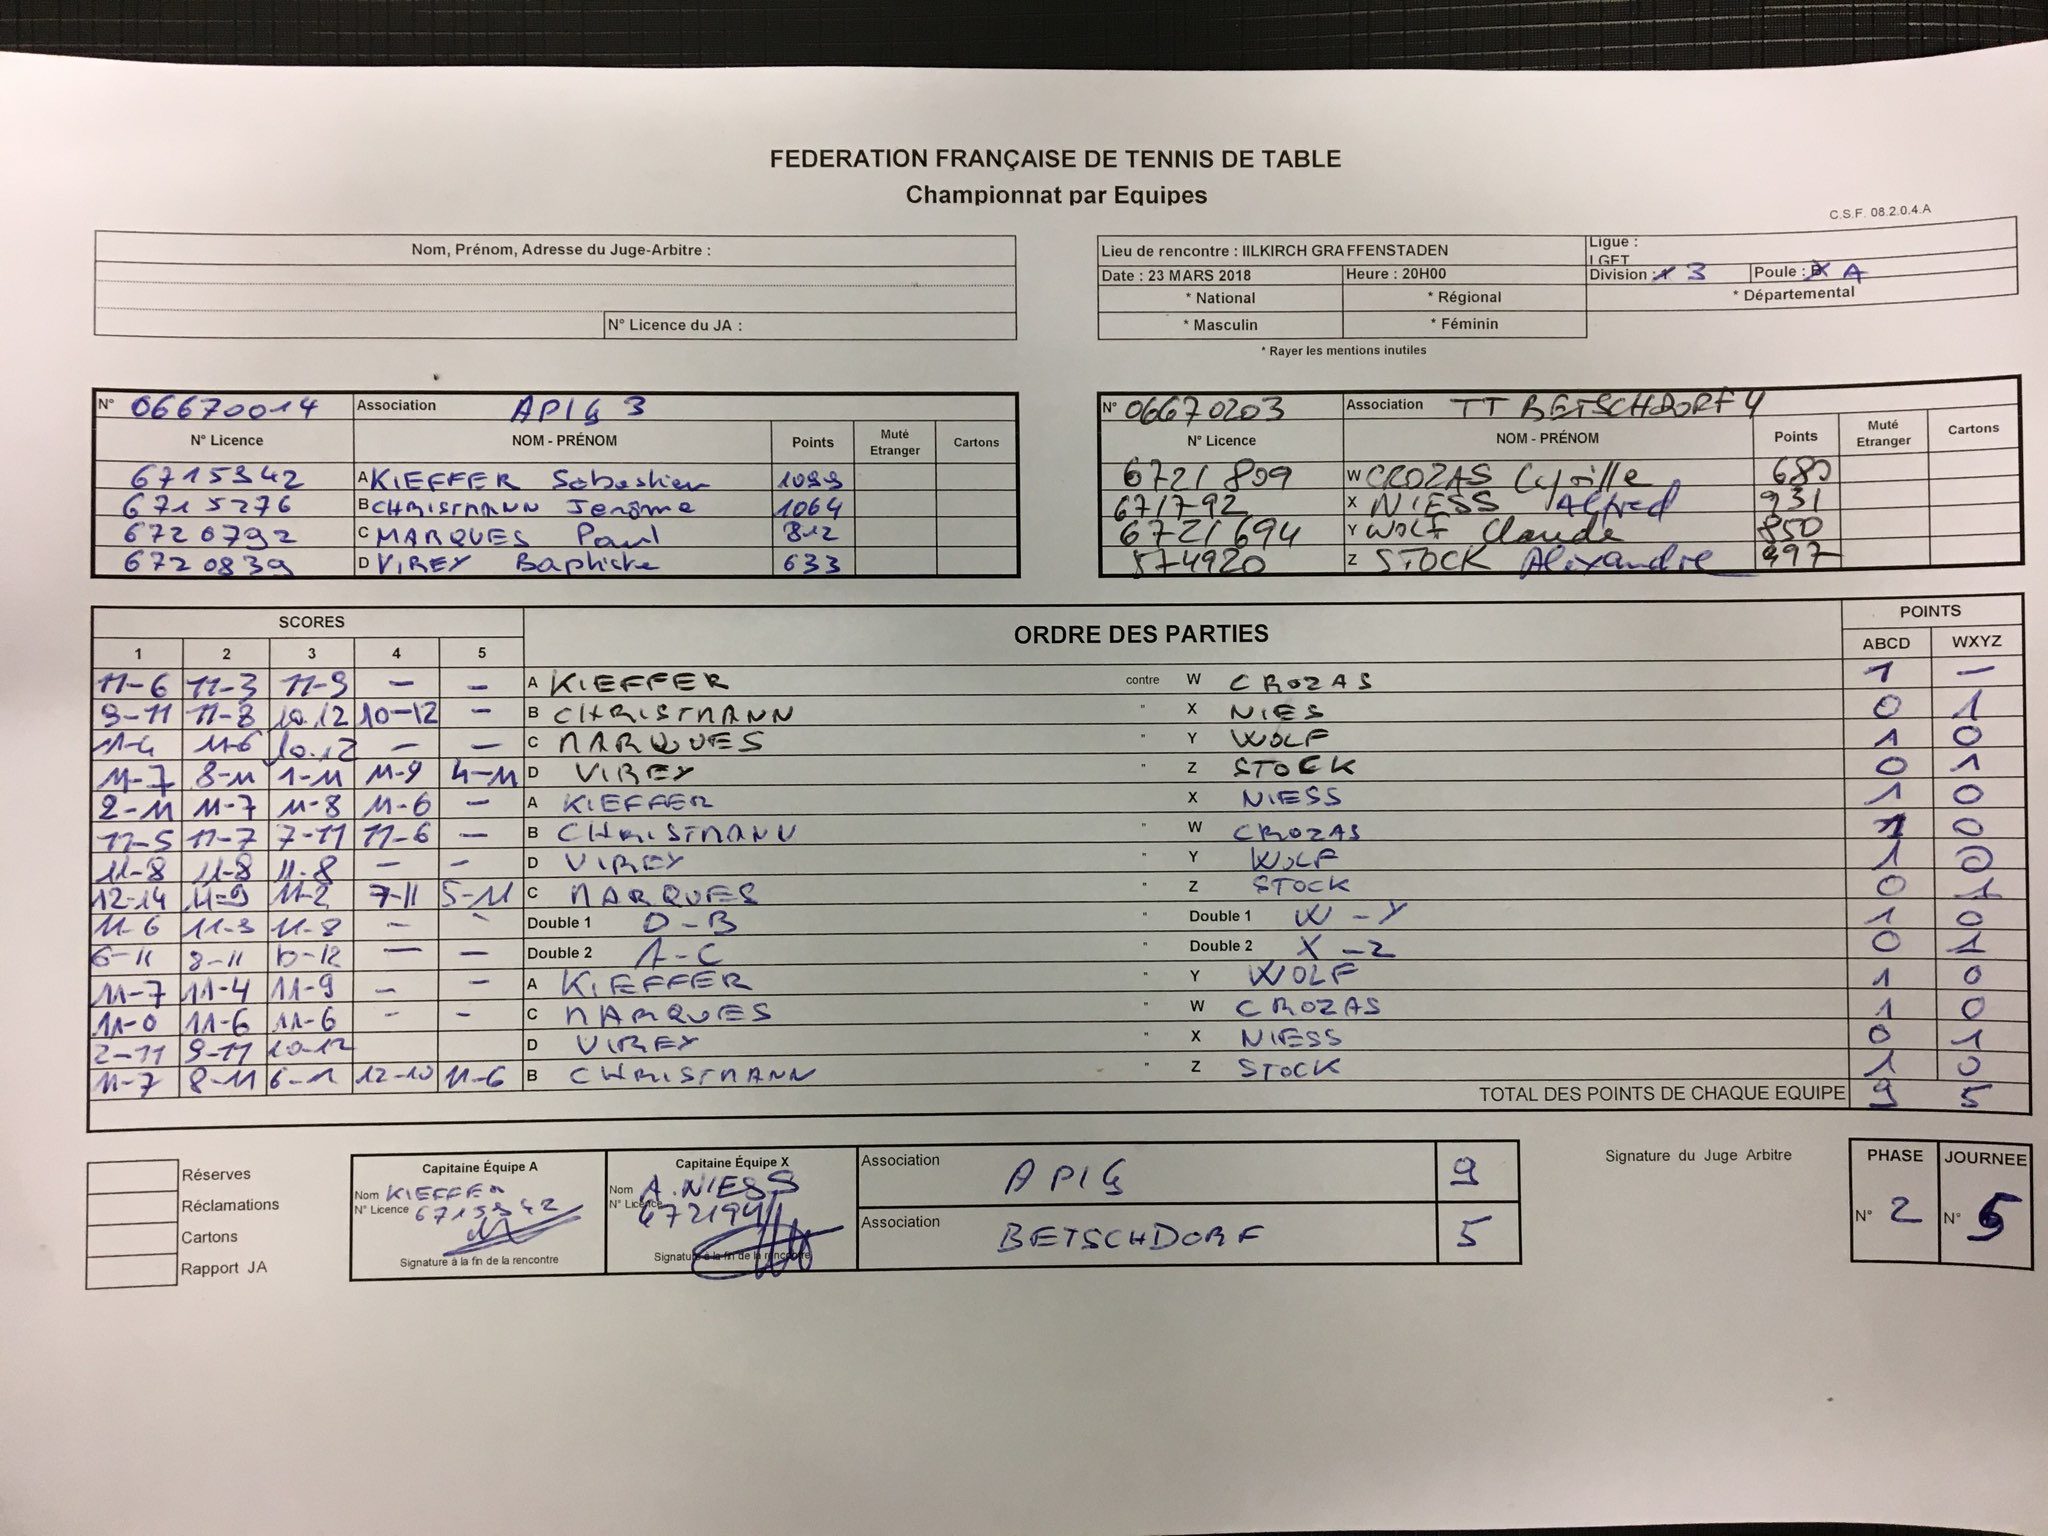 FEDERATION FRANÇAISE DE TENNIS DE TABLE
Championnat par Equipes
C.S.F. 08.2.0.4.A
Nom, Prénom, Adresse du Juge-Arbitre :
N° Licence du JA :
Lieu de rencontre : IILKIRCH GRAFFENSTADEN Ligue :
LGET
Date : 23 MARS 2018 Heure : 20H00 Division : 3 Poule : A
* National * Régional * Départemental
* Masculin * Féminin
* Rayer les mentions inutiles
N° 06670014 Association APIG 3
N° Licence NOM - PRÉNOM Points Muté Etranger Cartons
6715342 A KIEFFER Sebastien
6715276 B CHRISTMANN Jerôme 1064
6720792 C MARQUES Paul 812
6720839 D VIREY Baptiste 633
N° 06670203 Association TT BETSCHDORF 4
N° Licence NOM - PRÉNOM Points Muté Etranger Cartons
6721809 W CROZAS Cyrille 680
671792 X NIESS Alfred 931
6721694 Y WOLF Claude 850
574920 Z STOCK Alexandre 997
SCORES ORDRE DES PARTIES POINTS
1 2 3 4 5 ABCD WXYZ
11-6 11-3 11-9 — — A KIEFFER contre W CROZAS 1 —
9-11 11-8 10.12 10-12 — B CHRISTMANN " X NIES 0 1
11-4 11-6 10.12 — — C MARQUES " Y WOLF 1 0
11-7 8-11 1-11 11-9 4-11 D VIREY " Z STOCK 0 1
2-11 11-7 11-8 11-6 — A KIEFFER " X NIESS 1 0
11-5 11-7 7-11 11-6 — B CHRISTMANN " W CROZAS 1 0
11-8 11-8 11-8 — — D VIREY " Y WOLF 1 0
12-14 11-9 11-2 7-11 5-11 C MARQUES " Z STOCK 0 1
11-6 11-3 11-8 - - Double 1 D-B " Double 1 W-Y 1 0
6-11 8-11 10-12 — — Double 2 A-C " Double 2 X-Z 0 1
11-7 11-4 11-9 — — A KIEFFER " Y WOLF 1 0
11-0 11-6 11-6 - - C MARQUES " W CROZAS 1 0
2-11 9-11 10-12 D VIREY " X NIESS 0 1
11-7 8-11 6-11 12-10 11-6 B CHRISTMANN " Z STOCK 1 0
TOTAL DES POINTS DE CHAQUE EQUIPE 9 5
Réserves
Réclamations
Cartons
Rapport JA
Capitaine Équipe A
Nom KIEFFER
N° Licence 6715342
Signature à la fin de la rencontre
Capitaine Équipe X
Nom A. NIESS
N° Licence
Signature à la fin de la rencontre
Association APIG 9
Association BETSCHDORF 5
Signature du Juge Arbitre
PHASE JOURNEE
N° 2 N° 5